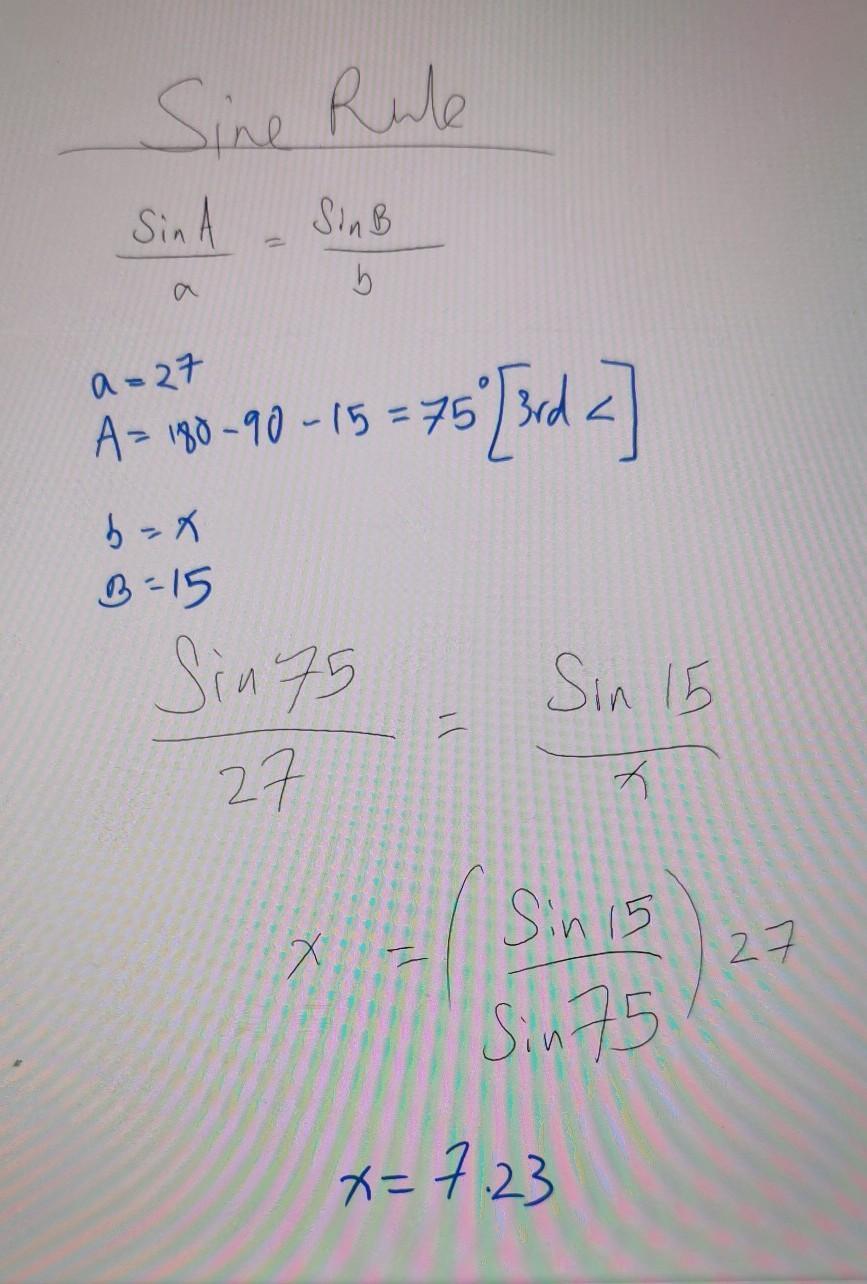 Sine Rule
Sin A / a = Sin B / b
a = 27
A = 180 - 90 - 15 = 75° [3rd <]
b = x
B = 15
Sin 75 / 27 = Sin 15 / x
x = ( Sin 15 / Sin 75 ) 27
x = 7.23